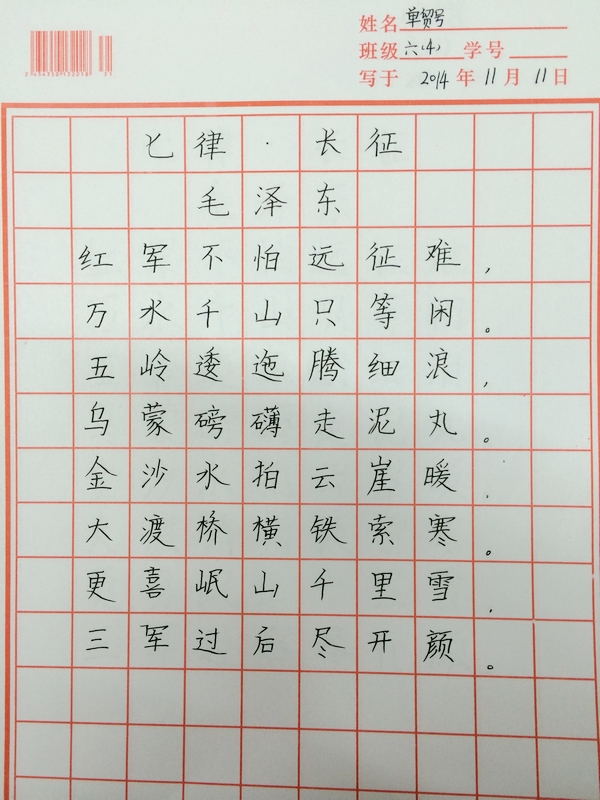 姓名
班级 六(4) 学号
写于 2014 年 11 月 11 日
七律·长征
毛泽东
红军不怕远征难,
万水千山只等闲。
五岭逶迤腾细浪,
乌蒙磅礴走泥丸。
金沙水拍云崖暖,
大渡桥横铁索寒。
更喜岷山千里雪,
三军过后尽开颜。